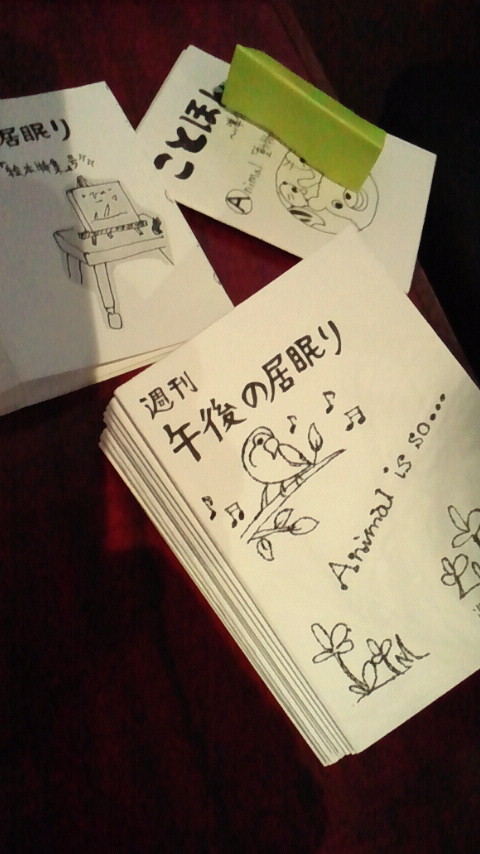 居眠り
「絵本特集」
ことほ
Animal
週刊
午後の居眠り
Animal is so...